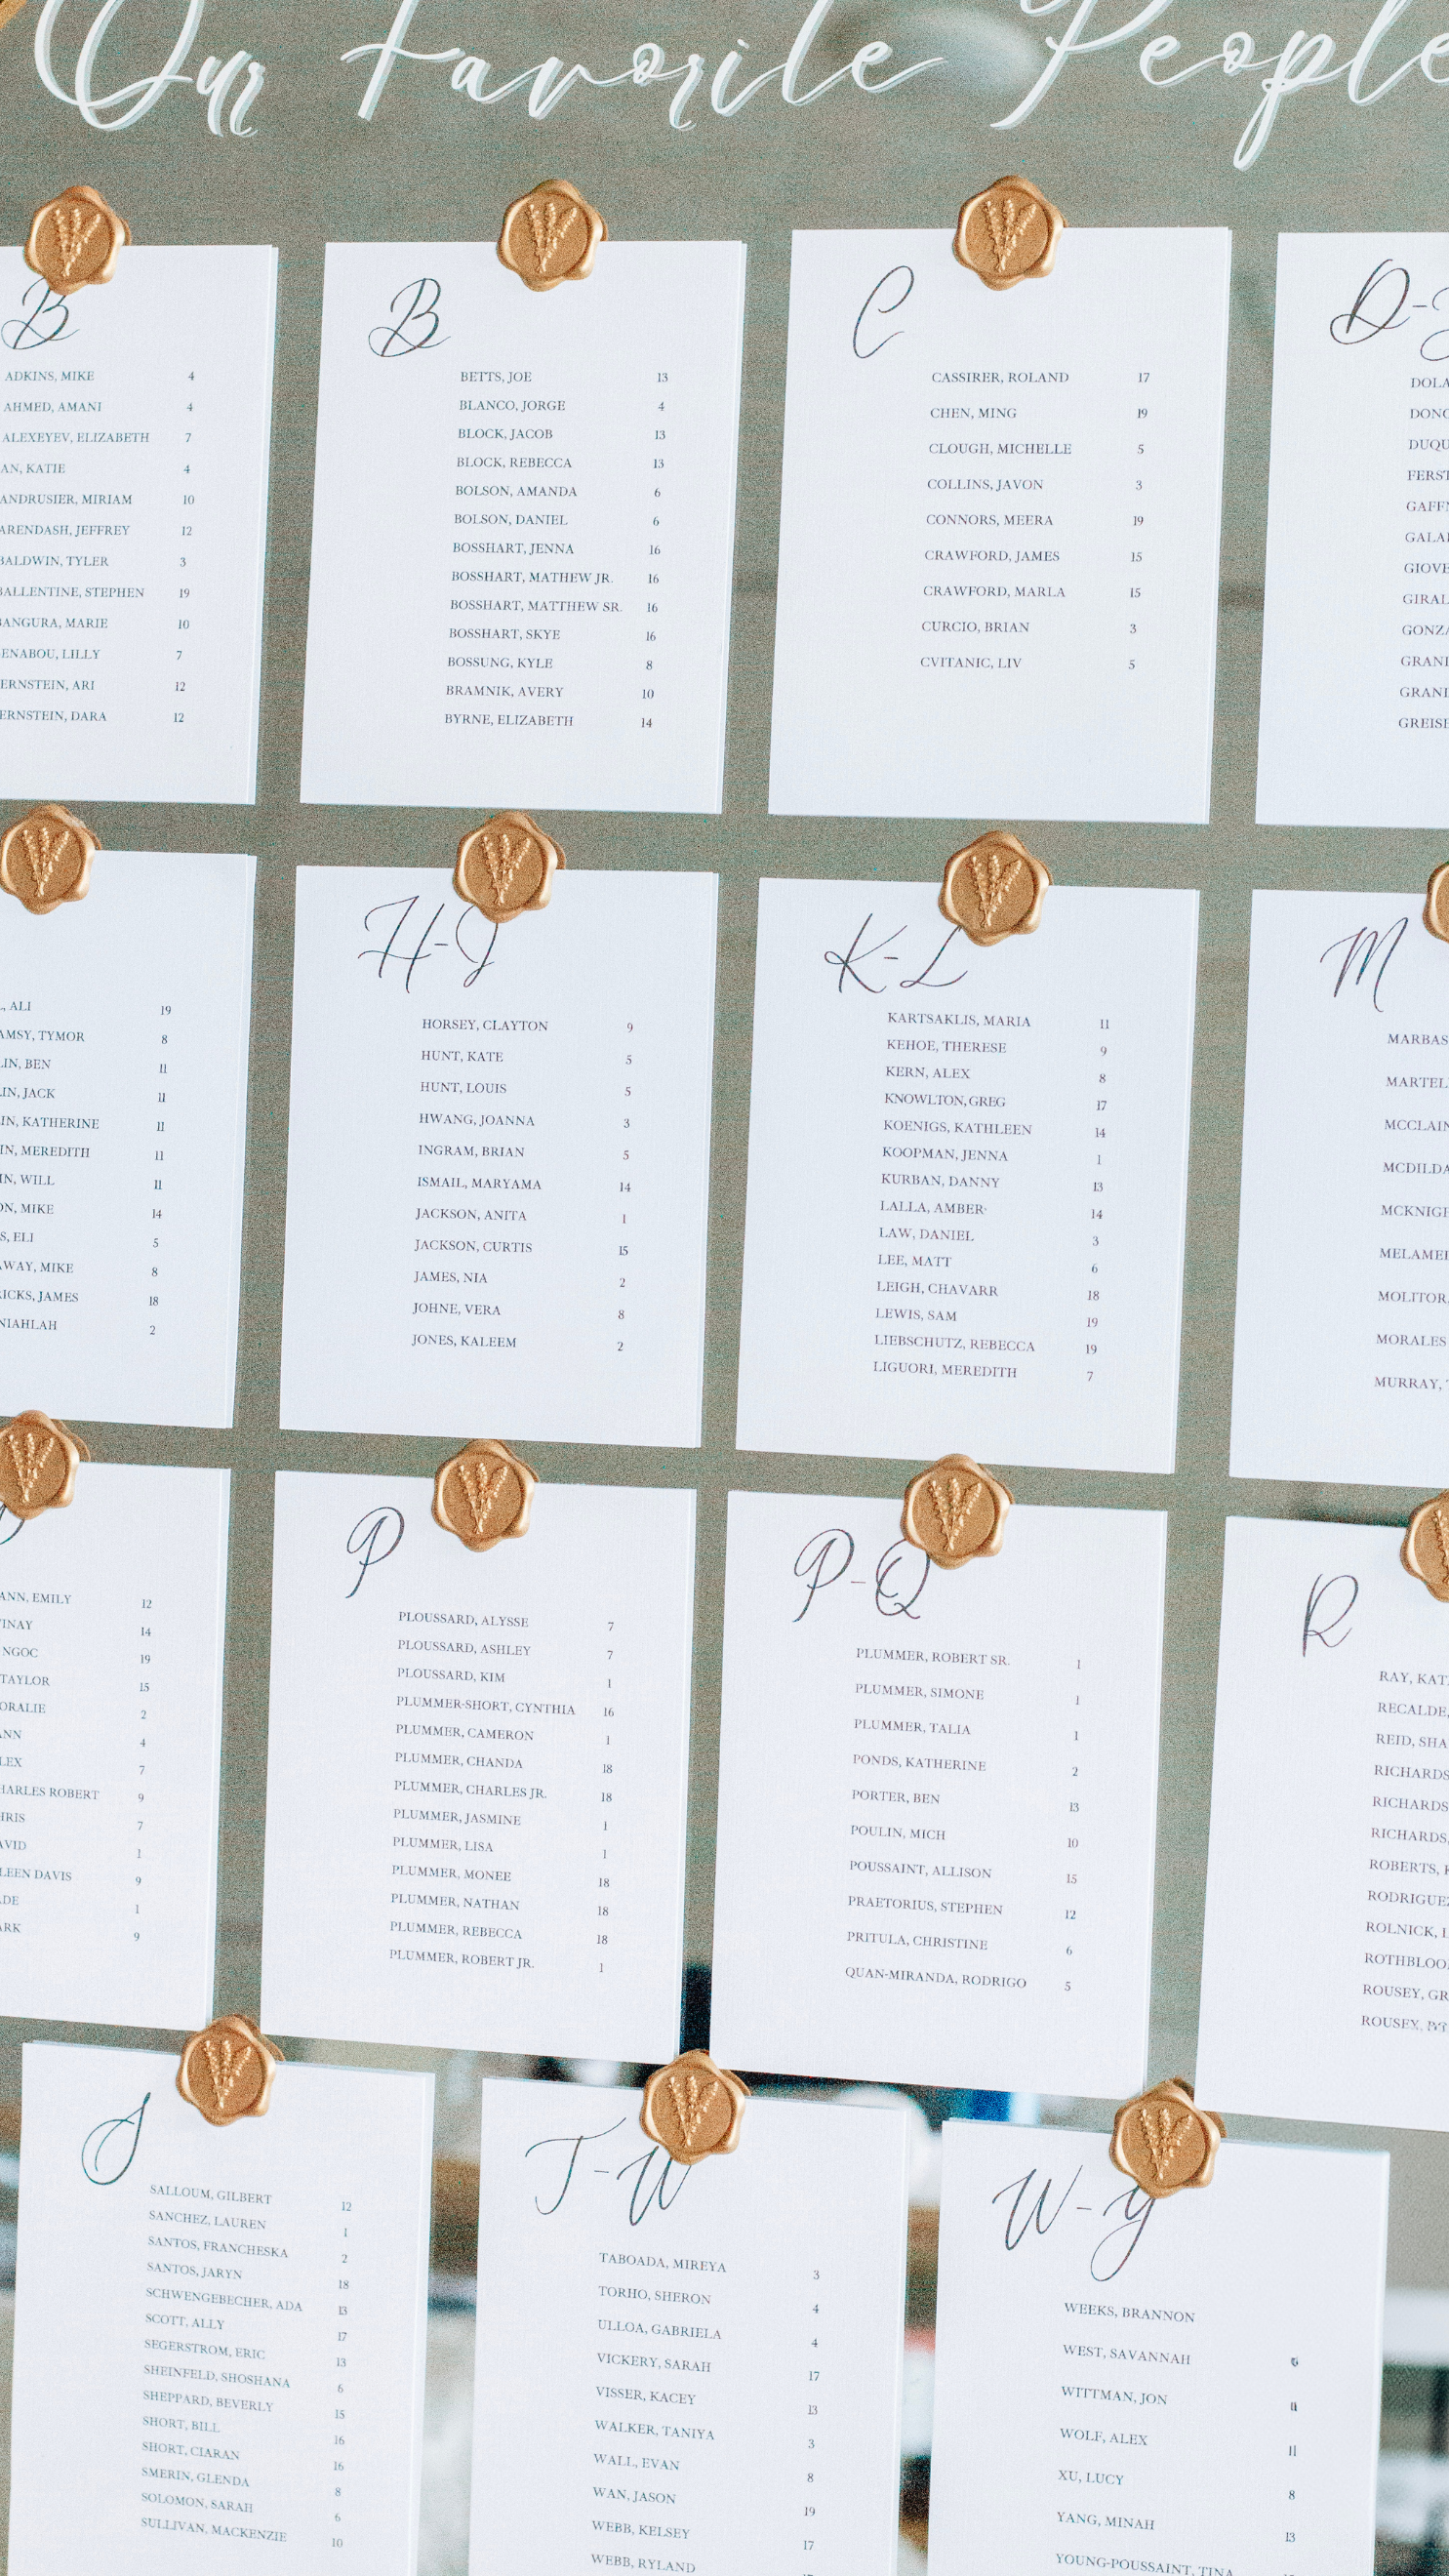 Our Favorite People
B
ADKINS, MIKE 4
AHMED, AMANI 4
ALEXEYEV, ELIZABETH 7
AN, KATIE 4
ANDRUSIER, MIRIAM 10
ARENDASH, JEFFREY 12
BALDWIN, TYLER 3
BALLENTINE, STEPHEN 19
BANGURA, MARIE 10
ENABOU, LILLY 7
ERNSTEIN, ARI 12
ERNSTEIN, DARA 12
B
BETTS, JOE 13
BLANCO, JORGE 4
BLOCK, JACOB 13
BLOCK, REBECCA 13
BOLSON, AMANDA 6
BOLSON, DANIEL 6
BOSSHART, JENNA 16
BOSSHART, MATHEW JR. 16
BOSSHART, MATTHEW SR. 16
BOSSHART, SKYE 16
BOSSUNG, KYLE 8
BRAMNIK, AVERY 10
BYRNE, ELIZABETH 14
C
CASSIRER, ROLAND 17
CHEN, MING 19
CLOUGH, MICHELLE 5
COLLINS, JAVON 3
CONNORS, MEERA 19
CRAWFORD, JAMES 15
CRAWFORD, MARLA 15
CURCIO, BRIAN 3
CVITANIC, LIV 5
D-
DOLA
DONO
DUQU
FERST
GAFFN
GALA
GIOVE
GIRAL
GONZA
GRANI
GRANI
GREISE
, ALI 19
AMSY, TYMOR 8
LIN, BEN 11
IN, JACK 11
IN, KATHERINE 11
IN, MEREDITH 11
IN, WILL 11
ON, MIKE 14
S, ELI 5
AWAY, MIKE 8
RICKS, JAMES 18
NIAHLAH 2
H-J
HORSEY, CLAYTON 9
HUNT, KATE 5
HUNT, LOUIS 5
HWANG, JOANNA 3
INGRAM, BRIAN 5
ISMAIL, MARYAMA 14
JACKSON, ANITA 1
JACKSON, CURTIS 15
JAMES, NIA 2
JOHNE, VERA 8
JONES, KALEEM 2
K-L
KARTSAKLIS, MARIA 11
KEHOE, THERESE 9
KERN, ALEX 8
KNOWLTON, GREG 17
KOENIGS, KATHLEEN 14
KOOPMAN, JENNA 1
KURBAN, DANNY 13
LALLA, AMBER 14
LAW, DANIEL 3
LEE, MATT 6
LEIGH, CHAVARR 18
LEWIS, SAM 19
LIEBSCHUTZ, REBECCA 19
LIGUORI, MEREDITH 7
M
MARBAS
MARTEL
MCCLAIN
MCDILDA
MCKNIGH
MELAMED
MOLITOR,
MORALES
MURRAY,
ANN, EMILY 12
INAY 14
NGOC 19
TAYLOR 15
ORALIE 2
ANN 4
LEX 7
HARLES ROBERT 9
HRIS 7
AVID 1
LEEN DAVIS 9
DE 1
ARK 9
P
PLOUSSARD, ALYSSE 7
PLOUSSARD, ASHLEY 7
PLOUSSARD, KIM 1
PLUMMER-SHORT, CYNTHIA 16
PLUMMER, CAMERON 1
PLUMMER, CHANDA 18
PLUMMER, CHARLES JR. 18
PLUMMER, JASMINE 1
PLUMMER, LISA 1
PLUMMER, MONEE 18
PLUMMER, NATHAN 18
PLUMMER, REBECCA 18
PLUMMER, ROBERT JR. 1
P-Q
PLUMMER, ROBERT SR. 1
PLUMMER, SIMONE 1
PLUMMER, TALIA 1
PONDS, KATHERINE 2
PORTER, BEN 13
POULIN, MICH 10
POUSSAINT, ALLISON 15
PRAETORIUS, STEPHEN 12
PRITULA, CHRISTINE 6
QUAN-MIRANDA, RODRIGO 5
R
RAY, KAT
RECALDE,
REID, SHA
RICHARDS
RICHARDS
RICHARDS,
ROBERTS,
RODRIGUEZ
ROLNICK,
ROTHBLOO
ROUSEY, GR
ROUSEY,
S
SALLOUM, GILBERT 12
SANCHEZ, LAUREN 1
SANTOS, FRANCHESKA 2
SANTOS, JARYN 18
SCHWENGEBECHER, ADA 13
SCOTT, ALLY 17
SEGERSTROM, ERIC 13
SHEINFELD, SHOSHANA 6
SHEPPARD, BEVERLY 15
SHORT, BILL 16
SHORT, CIARAN 16
SMERIN, GLENDA 8
SOLOMON, SARAH 6
SULLIVAN, MACKENZIE 10
T-W
TABOADA, MIREYA 3
TORHO, SHERON 4
ULLOA, GABRIELA 4
VICKERY, SARAH 17
VISSER, KACEY 13
WALKER, TANIYA 3
WALL, EVAN 8
WAN, JASON 19
WEBB, KELSEY 17
WEBB, RYLAND
W-Y
WEEKS, BRANNON
WEST, SAVANNAH
WITTMAN, JON 11
WOLF, ALEX 11
XU, LUCY 8
YANG, MINAH 13
YOUNG-POUSSAINT, TINA